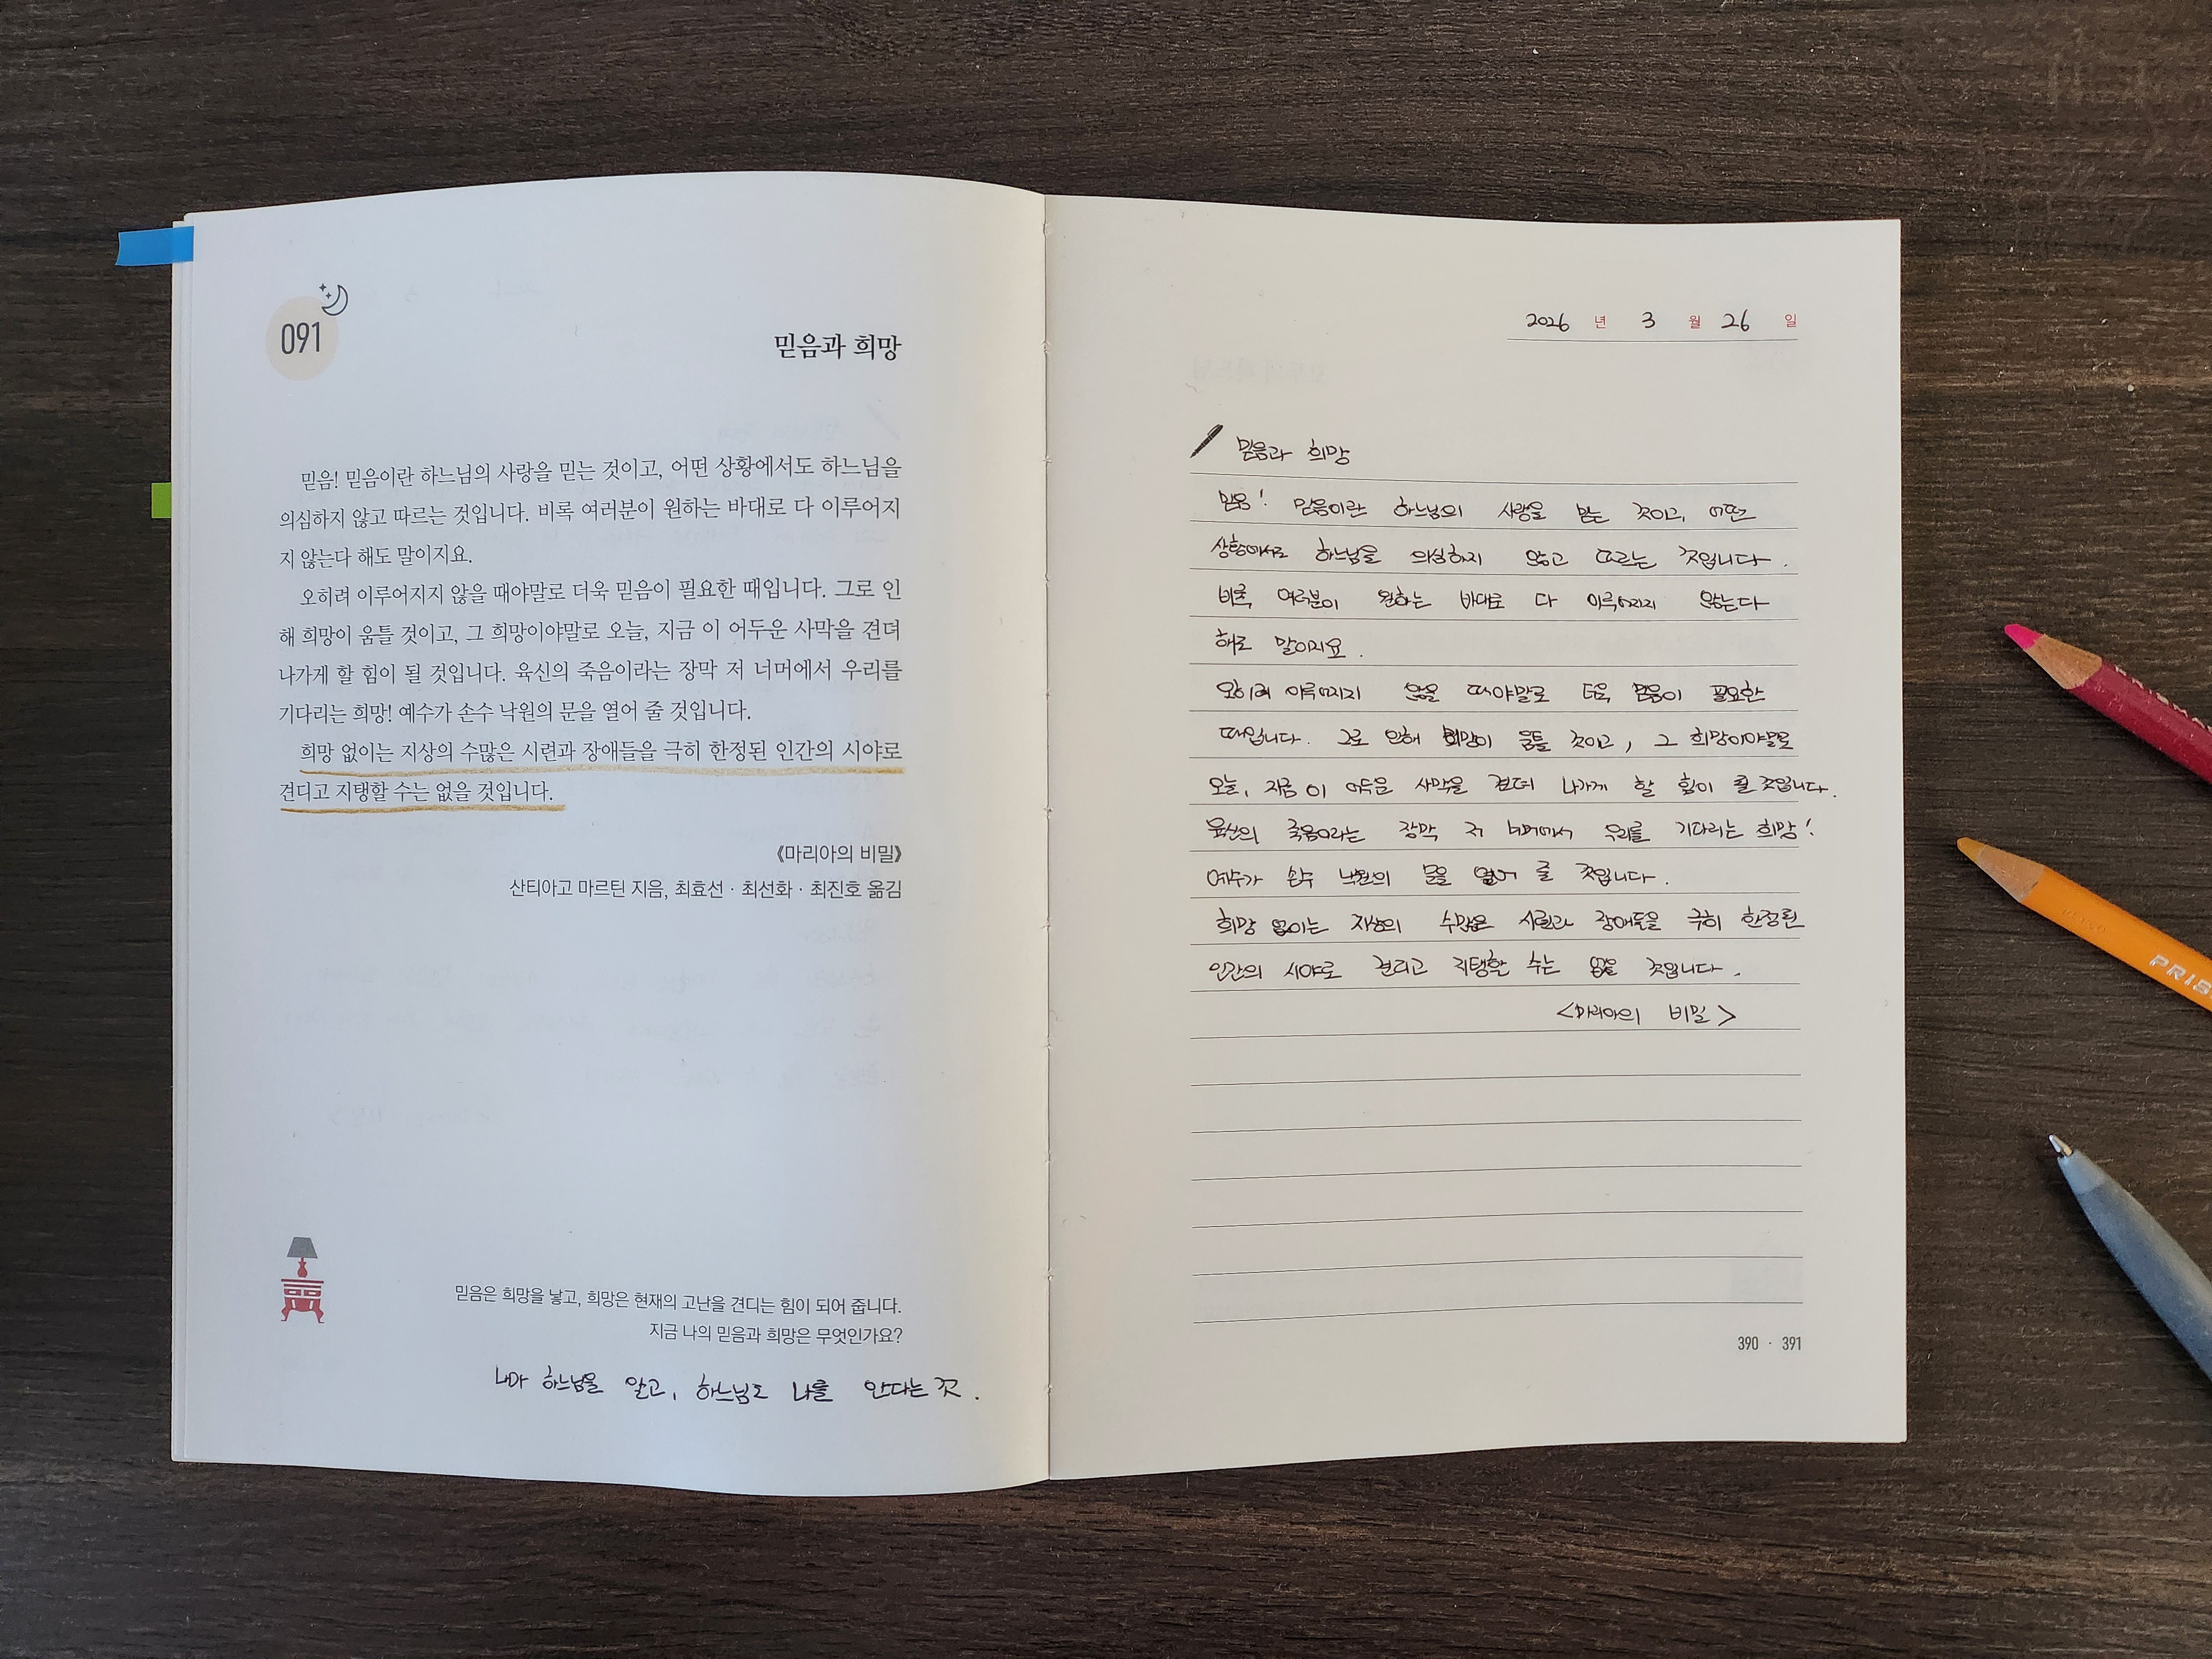 091
믿음과 희망
믿음! 믿음이란 하느님의 사랑을 믿는 것이고, 어떤 상황에서도 하느님을
의심하지 않고 따르는 것입니다. 비록 여러분이 원하는 바대로 다 이루어지
지 않는다 해도 말이지요.
오히려 이루어지지 않을 때야말로 더욱 믿음이 필요한 때입니다. 그로 인
해 희망이 움틀 것이고, 그 희망이야말로 오늘, 지금 이 어두운 사막을 견뎌
나가게 할 힘이 될 것입니다. 육신의 죽음이라는 장막 저 너머에서 우리를
기다리는 희망! 예수가 손수 낙원의 문을 열어 줄 것입니다.
희망 없이는 지상의 수많은 시련과 장애들을 극히 한정된 인간의 시야로
견디고 지탱할 수는 없을 것입니다.
《마리아의 비밀》
산티아고 마르틴 지음, 최효선 · 최선화 · 최진호 옮김
믿음은 희망을 낳고, 희망은 현재의 고난을 견디는 힘이 되어 줍니다.
지금 나의 믿음과 희망은 무엇인가요?
내가 하느님을 알고, 하느님도 나를 안다는 것.
2026 년 3 월 26 일
믿음과 희망
믿음! 믿음이란 하느님의 사랑을 믿는 것이고, 어떤
상황에서도 하느님을 의심하지 않고 따르는 것입니다.
비록 여러분이 원하는 바대로 다 이루어지지 않는다
해도 말이지요.
오히려 이루어지지 않을 때야말로 더욱 믿음이 필요한
때입니다. 그로 인해 희망이 움틀 것이고, 그 희망이야말로
오늘, 지금 이 어두운 사막을 견뎌 나가게 할 힘이 될 것입니다.
육신의 죽음이라는 장막 저 너머에서 우리를 기다리는 희망!
예수가 손수 낙원의 문을 열어 줄 것입니다.
희망 없이는 지상의 수많은 시련과 장애들을 극히 한정된
인간의 시야로 견디고 지탱할 수는 없을 것입니다.
<마리아의 비밀>
390 · 391
PRIS